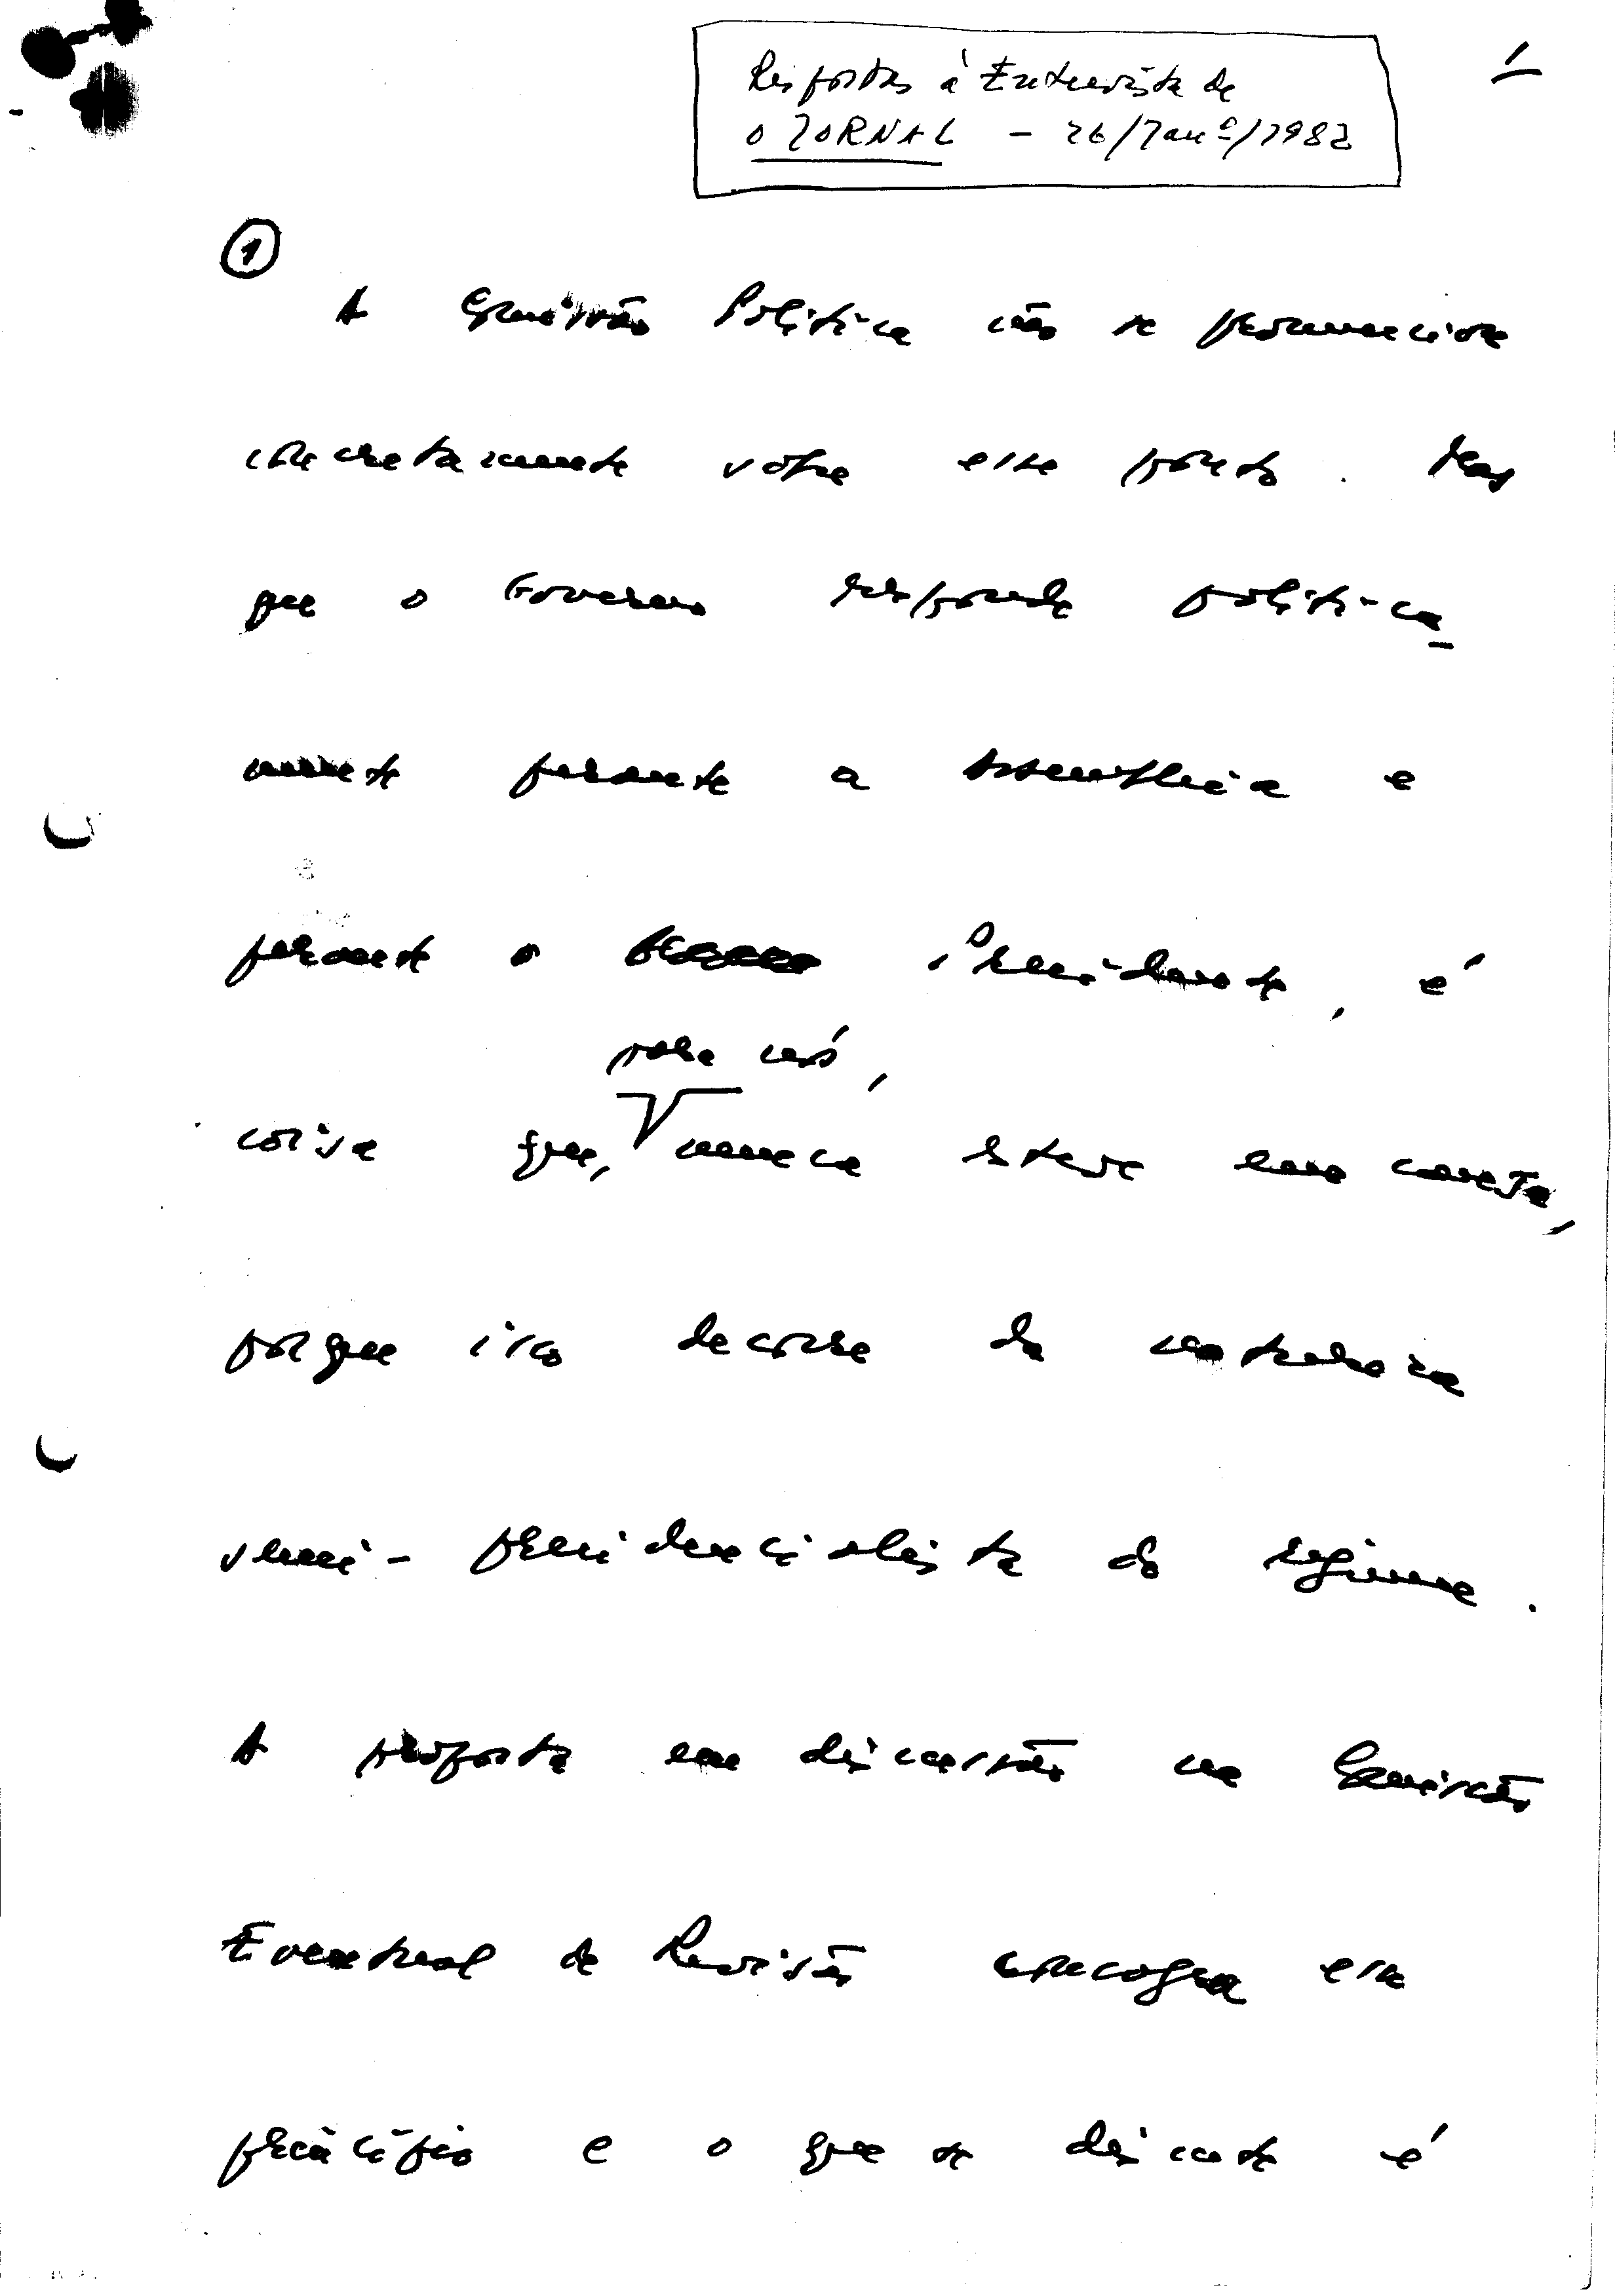 Respostas à Entrevista de
O JORNAL - 26/Janº/1982
1
①
A Comissão Política não se pronunciou
concretamente sobre esse ponto. Mas
que o Governo responde politica-
mente perante a Assembleia e
perante o Presidente, é
para nós,
coisa que, nunca esteve em causa,
porque isso decorre da natureza
semi-presidencialista do regime.
A proposta em discussão na Comissão
Eventual de Revisão consagra esse
princípio e o que se discute é